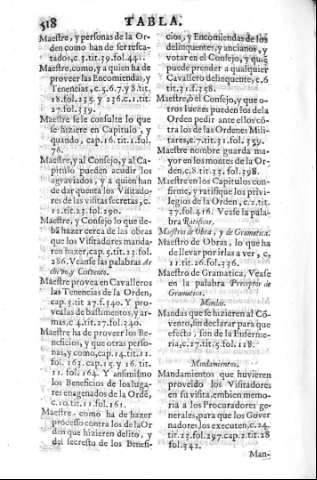 518 TABLA.
Maestre, y personas de la Or-
den como han de ser resca-
tados, c.3.tit.39.fol.441.
Maestre, como, y a quien ha de
proveer las Encomiendas, y
Tenencias, c.5.6.7.y 8.tit.
18.fol.235. y 236.c.1.tit.
27.fol.339.
Maestre se le consulte lo que
se hiziere en Capitulo, y
quando, cap.16.tit.1.fol.
76.
Maestre, y al Consejo, y al Ca-
pitulo pueden acudir los
agraviados, y a quien han
de dar quenta los Visitado-
res de las visitas secretas, c.
12.tit.23.fol.290.
Maestre, y Consejo lo que de-
bã hazer cerca de las obras
que los Visitadores manda-
ren hazer, cap.5.tit.23.fol.
286. Veanse las palabras Ar
chivo, y Convento.
Maestre provea en Cavalleros
las Tenencias de la Orden,
cap.5.tit 27.f.340. Y pro-
vealas de bastimentos, y ar-
mas, c.4.tit.27.fol.340.
Maestre ha de proveer los Be-
neficios, y que otras perso-
nas, y como, cap.14.tit.11.
fol. 163. cap.15.y 16. tit.
11. fol. 164. Y ansimismo
los Beneficios de los luga-
res enagenados de la Ordẽ,
c.10.tit.11.fol.161.
Maestre como ha de hazer
processo contra los de la Or
den que hizieren delito, y
dai secresto de los Benefi-
cios, y Encomiendas de los
delinquentes, y ancianos, y
votar en el Consejo, y que
puede prender a qualquier
Cavallero delinquente, c.6
tit.31.f.358.
Maestre, ò el Consejo, y que o-
tros Iuezes pueden los de la
Orden pedir ante ellos cõ-
tra los de las Ordenes Mili-
tares, c.7.tit.31.fol.359.
Maestre nombre guarda ma-
yor en los montes de la Or-
den, c.8.tit.33.fol.398.
Maestre en los Capitulos con-
firme, y ratifique los privi-
legios de la Orden, c.2.tit.
37.fol.416. Vease la pala-
bra Ratificar.
Maestros de Obra, y de Gramatica.
Maestro de Obras, lo que ha
de llevar por irlas a ver, c,
11.tit.26.fol.336.
Maestro de Gramatica, Vease
en la palabra Preceptor de
Gramatica.
Mandas.
Mandas que se hizieren al Cõ-
vento, sin declarar para que
efecto, son de la Enferme-
ria, c.17.tit.5.fol.118.
Mandamientos.
Mandamientos que huvieren
proveido los Visitadores
en su visita, embien memo-
ria a los Procuradores ge-
nerales, para que los Gover
nadores los executen, c.24.
tit.23.fol.297.cap.2.tit.28
fol.342.
Man-